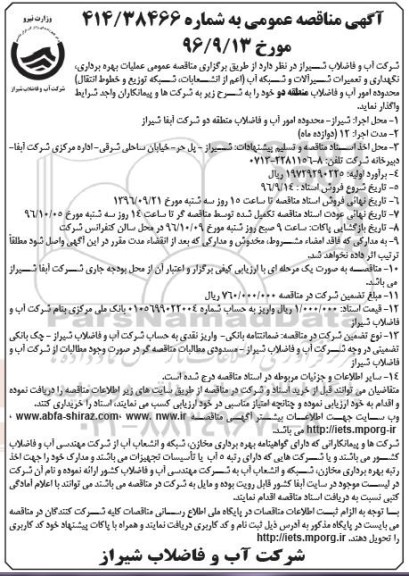 وزارت نیرو
شرکت آب و فاضلاب شیراز
آگهی مناقصه عمومی به شماره ۴۱۴/۳۸۴۶۶
مورخ ۹۶/۹/۱۳
شرکت آب و فاضلاب شیراز در نظر دارد از طریق برگزاری مناقصه عمومی عملیات بهره برداری،
نگهداری و تعمیرات شیرآلات و شبکه آب (اعم از انشعابات، شبکه توزیع و خطوط انتقال)
محدوده امور آب و فاضلاب منطقه دو خود را به شرح زیر به شرکت ها و پیمانکاران واجد شرایط
واگذار نماید.
۱- محل اجرا: شیراز- محدوده امور آب و فاضلاب منطقه دو شرکت آبفا شیراز
۲- مدت اجرا: ۱۲ (دوازده ماه)
۳- محل اخذ اسناد مناقصه و تسلیم پیشنهادات: شیراز - پل حر- خیابان ساحلی شرقی- اداره مرکزی شرکت آبفا-
دبیرخانه شرکت تلفن: ۸-۳۲۲۸۱۱۵۶-۰۷۱
۴- برآورد اولیه: ۱۹۷۲۹۲۹۰۲۲۵ ریال
۵- تاریخ شروع فروش اسناد: ۹۶/۹/۱۴
۶- تاریخ نهائی فروش اسناد مناقصه تا ساعت ۱۵ روز سه شنبه مورخ ۱۳۹۶/۰۹/۲۱
۷- تاریخ نهائی عودت اسناد مناقصه تکمیل شده توسط مناقصه گر تا ساعت ۱۴ روز سه شنبه مورخ ۹۶/۱۰/۰۵
۸- تاریخ بازگشایی پاکات: ساعت ۹ صبح روز شنبه مورخ ۹۶/۱۰/۰۹ در محل سالن کنفرانس شرکت
۹- به مدارکی که فاقد امضاء مشروط، مخدوش و مدارکی که بعد از انقضاء مدت مقرر در این آگهی واصل شود مطلقاً
ترتیب اثر داده نخواهد شد.
۱۰- مناقصه به صورت یک مرحله ای با ارزیابی کیفی برگزار و اعتبار آن از محل بودجه جاری شرکت آبفا شیراز
می باشد.
۱۱- مبلغ تضمین شرکت در مناقصه ۷۶۰/۰۰۰/۰۰۰ ریال
۱۲- قیمت اسناد: ۱/۰۰۰/۰۰۰ ریال واریز به حساب شماره ۰۱۰۵۶۹۹۰۲۲۰۰۴ بانک ملی مرکزی بنام شرکت آب و
فاضلاب شیراز
۱۳- نوع تضمین شرکت در مناقصه: ضمانتنامه بانکی- واریز نقدی به حساب شرکت آب و فاضلاب شیراز - چک بانکی
تضمینی در وجه شرکت آب و فاضلاب شیراز - مسدودی مطالبات مناقصه گر در صورت وجود مطالبات از شرکت آب و
فاضلاب شیراز
۱۴- سایر اطلاعات و جزئیات مربوطه در اسناد مناقصه درج شده است.
متقاضیان می توانند قبل از خرید اسناد و شرکت در مناقصه از طریق سایت های زیر اطلاعات مناقصه را دریافت نموده
و اقدام به خود ارزیابی نموده و چنانچه امتیاز مناسبی در خود ارزیابی کسب می نمایند، اسناد را خریداری کنند.
وب سایت جهت اطلاعات بیشتر آگهی مناقصه www.abfa-shiraz.com، www.nww.ir و
http://iets.mporg-ir می باشد.
شرکت ها و پیمانکارانی که دارای گواهینامه بهره برداری مخازن، شبکه و انشعاب آب از شرکت مهندسی آب و فاضلاب
کشور می باشند و یا شرکت هایی که دارای رتبه ۵ آب یا تأسیسات تجهیزات می باشند و مدارک خود را جهت اخذ
رتبه بهره برداری مخازن، شبکه و انشعاب آب به شرکت مهندسی آب و فاضلاب کشور ارائه نموده و نام آن شرکت
در لیست موجود در سایت آبفا کشور قابل رویت بوده و مایل به شرکت در مناقصه می باشند می توانند با اعلام آمادگی
کتبی نسبت به دریافت اسناد مناقصه اقدام نمایند.
با توجه به الزام ثبت اطلاعات مناقصات در پایگاه ملی اطلاع رسانی مناقصات کلیه شرکت کنندگان در مناقصه
می بایست در پایگاه مذکور به آدرس ذیل ثبت نام و کد کاربری دریافت نمایند و همراه با پاکات پیشنهاد خود کد کاربری
را تحویل دهند. http://iets.mporg.ir
شرکت آب و فاضلاب شیراز